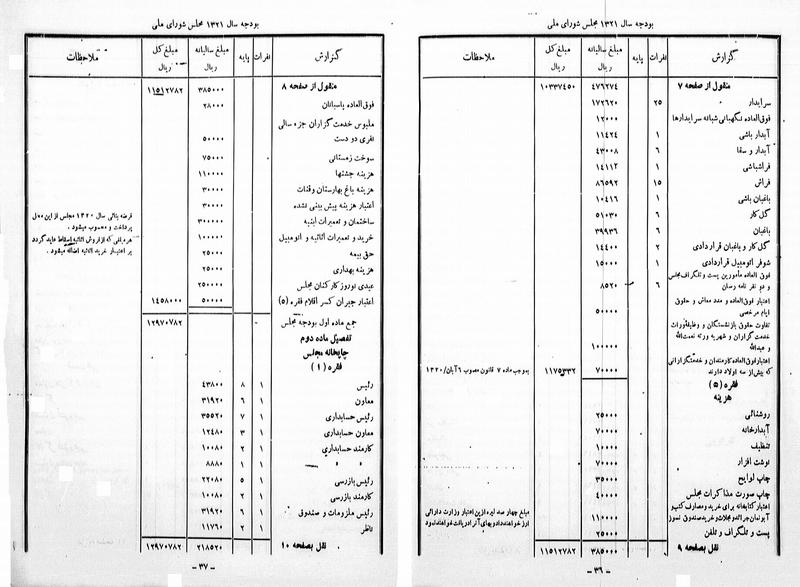 بودجه سال ۱۳۲۱ مجلس شورای ملی
گزارش نفرات پایه مبلغ سالیانه ریال مبلغ کل ریال ملاحظات
منقول از صفحه ۷ ۴۷۶۲۷۴ ۱۰۳۳۷۴۵۰
سرایدار ۲۵ ۱۷۲۶۲۰
فوق‌العاده نگهبانی شبانه سرایدارها ۱۲۰۰۰
آبدار باشی ۱ ۱۱۴۲۴
آبدار و سقا ۶ ۴۳۰۰۸
فراشباشی ۱ ۱۴۱۱۲
فراش ۱۵ ۸۶۵۹۲
باغبان باشی ۱ ۱۰۴۱۶
گل کار ۶ ۵۱۰۳۰
باغبان ۶ ۳۹۹۳۶
گل کار و باغبان قراردادی ۲ ۱۴۴۰۰
شوفر اتومبیل قراردادی ۱ ۱۵۰۰۰
فوق العاده مأمورین پست و تلگراف مجلس
و دو نفر نامه رسان ۶ ۸۵۲۰
اعتبار فوق‌العاده و مدد معاش و حقوق
ایام مرخصی ۵۰۰۰۰
تفاوت حقوق بازنشستگان و وظیفه وراث
خدمت گزاران و شهریه ورثه نعمت‌الله
و عبدالله ۱۰۰۰۰۰
اعتبار فوق‌العاده کارمندان و خدمتگزارانی
که بیش از سه اولاد دارند ۷۰۰۰۰ ۱۱۷۵۳۳۲ بموجب ماده ۷ قانون مصوب ۶ آبان/۱۳۲۰
فقره (۵)
هزینه
روشنائی ۲۵۰۰۰
آبدارخانه ۷۰۰۰۰
تنظیف ۱۰۰۰۰
نوشت افزار ۷۰۰۰۰
چاپ لوایح ۳۵۰۰۰
چاپ صورت مذاکرات مجلس ۴۰۰۰۰
اعتبار کتابخانه برای خرید و مصارف کتب و
آبونمان جرائد و مجلات و خرید صندوق نسوز ۱۱۰۰۰۰ مبلغ چهار صد لیره از این اعتبار وزارت دارائی
پست و تلگراف و تلفن ۲۵۰۰۰
نقل بصفحه ۹ ۳۸۵۰۰۰ ۱۱۵۱۲۷۸۲
- ۳۶ -
بودجه سال ۱۳۲۱ مجلس شورای ملی
گزارش نفرات پایه مبلغ سالیانه ریال مبلغ کل ریال ملاحظات
منقول از صفحه ۸ ۳۸۵۰۰۰ ۱۱۵۱۲۷۸۲
فوق‌العاده پاسبانان ۲۸۰۰۰
ملبوس خدمت گزاران جزء سالی
نفری دو دست ۵۰۰۰۰
سوخت زمستانی ۷۵۰۰۰
هزینه جشنها ۱۱۰۰۰۰
هزینه باغ بهارستان وقنات ۳۰۰۰۰
اعتبار هزینه پیش بینی نشده ۳۰۰۰۰
ساختمان و تعمیرات ابنیه ۳۰۰۰۰۰ قرضه بنائی سال ۱۳۲۰ مجلس از این محل
پرداخت و محسوب میشود .
خرید و تعمیرات اثاثیه و اتومبیل ۱۰۰۰۰۰ هر مبلغی که از فروش اثاثیه اسقاط عاید گردد
بر اعتبار خرید اثاثیه اضافه میشود .
حق بیمه ۲۵۰۰۰
هزینه بهداری ۲۵۰۰۰
عیدی نوروز کارکنان مجلس ۲۵۰۰۰۰
اعتبار جبران کسر اقلام فقره (۵) ۵۰۰۰۰ ۱۴۵۸۰۰۰
جمع ماده اول بودجه مجلس ۱۲۹۷۰۷۸۲
تفصیل ماده دوم
چاپخانه مجلس
فقره (۱)
رئیس ۱ ۸ ۴۳۸۰۰
معاون ۱ ۶ ۳۱۹۲۰
رئیس حسابداری ۱ ۷ ۳۵۵۲۰
معاون حسابداری ۱ ۳ ۱۲۴۸۰
کارمند حسابداری ۱ ۲ ۱۰۰۸۰
» » ۱ ۱ ۸۸۸۰
رئیس بازرسی ۱ ۵ ۲۲۰۸۰
کارمند بازرسی ۱ ۲ ۱۰۰۸۰
رئیس ملزومات و صندوق ۱ ۶ ۳۱۹۲۰
ناظر ۱ ۲ ۱۱۷۶۰
نقل بصفحه ۱۰ ۲۱۸۵۲۰ ۱۲۹۷۰۷۸۲
- ۳۷ -